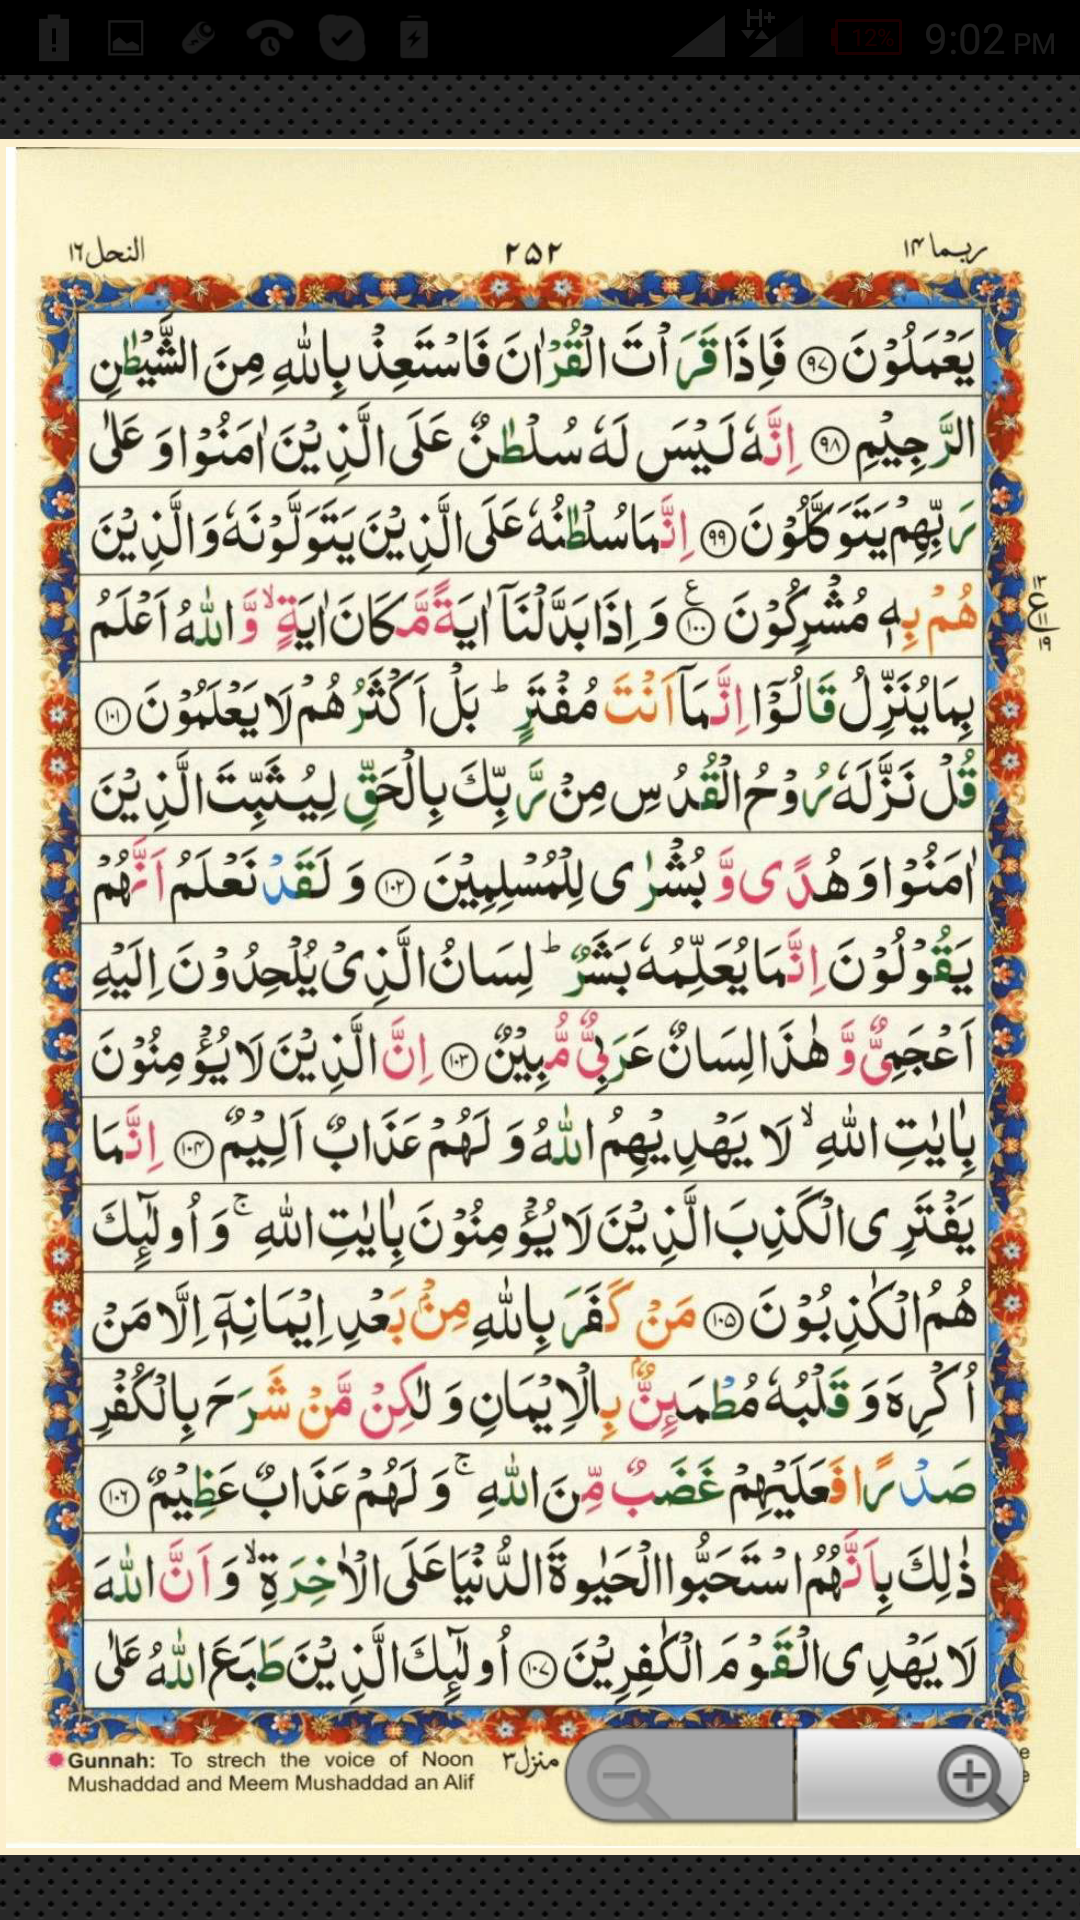 12% 9:02 PM
H+
ربما ١٤
٢٥٢
النحل ١٦
يَعْمَلُوْنَ ﴿٩٧﴾ فَاِذَا قَرَاْتَ الْقُرْاٰنَ فَاسْتَعِذْ بِاللّٰهِ مِنَ الشَّيْطٰنِ
الرَّجِيْمِ ﴿٩٨﴾ اِنَّهٗ لَيْسَ لَهٗ سُلْطٰنٌ عَلَى الَّذِيْنَ اٰمَنُوْا وَ عَلٰى
رَبِّهِمْ يَتَوَكَّلُوْنَ ﴿٩٩﴾ اِنَّمَا سُلْطٰنُهٗ عَلَى الَّذِيْنَ يَتَوَلَّوْنَهٗ وَ الَّذِيْنَ
هُمْ بِهٖ مُشْرِكُوْنَ ﴿١٠٠﴾ۧ وَ اِذَا بَدَّلْنَاۤ اٰيَةً مَّكَانَ اٰيَةٍ ۙ وَّ اللّٰهُ اَعْلَمُ
١٣
ع
١١
١٩
بِمَا يُنَزِّلُ قَالُوْۤا اِنَّمَاۤ اَنْتَ مُفْتَرٍ ؕ بَلْ اَكْثَرُهُمْ لَا يَعْلَمُوْنَ ﴿١٠١﴾
قُلْ نَزَّلَهٗ رُوْحُ الْقُدُسِ مِنْ رَّبِّكَ بِالْحَقِّ لِيُثَبِّتَ الَّذِيْنَ
اٰمَنُوْا وَ هُدًى وَّ بُشْرٰى لِلْمُسْلِمِيْنَ ﴿١٠٢﴾ وَ لَقَدْ نَعْلَمُ اَنَّهُمْ
يَقُوْلُوْنَ اِنَّمَا يُعَلِّمُهٗ بَشَرٌ ؕ لِسَانُ الَّذِيْ يُلْحِدُوْنَ اِلَيْهِ
اَعْجَمِيٌّ وَّ هٰذَا لِسَانٌ عَرَبِيٌّ مُّبِيْنٌ ﴿١٠٣﴾ اِنَّ الَّذِيْنَ لَا يُؤْمِنُوْنَ
بِاٰيٰتِ اللّٰهِ ۙ لَا يَهْدِيْهِمُ اللّٰهُ وَ لَهُمْ عَذَابٌ اَلِيْمٌ ﴿١٠٤﴾ اِنَّمَا
يَفْتَرِى الْكَذِبَ الَّذِيْنَ لَا يُؤْمِنُوْنَ بِاٰيٰتِ اللّٰهِ ۚ وَ اُولٰٓئِكَ
هُمُ الْكٰذِبُوْنَ ﴿١٠٥﴾ مَنْ كَفَرَ بِاللّٰهِ مِنْۢ بَعْدِ اِيْمَانِهٖۤ اِلَّا مَنْ
اُكْرِهَ وَ قَلْبُهٗ مُطْمَئِنٌّۢ بِالْاِيْمَانِ وَ لٰكِنْ مَّنْ شَرَحَ بِالْكُفْرِ
صَدْرًا فَعَلَيْهِمْ غَضَبٌ مِّنَ اللّٰهِ ۚ وَ لَهُمْ عَذَابٌ عَظِيْمٌ ﴿١٠٦﴾
ذٰلِكَ بِاَنَّهُمُ اسْتَحَبُّوا الْحَيٰوةَ الدُّنْيَا عَلَى الْاٰخِرَةِ ۙ وَ اَنَّ اللّٰهَ
لَا يَهْدِى الْقَوْمَ الْكٰفِرِيْنَ ﴿١٠٧﴾ اُولٰٓئِكَ الَّذِيْنَ طَبَعَ اللّٰهُ عَلٰى
منزل ٣
Gunnah: To strech the voice of Noon
Mushaddad and Meem Mushaddad an Alif